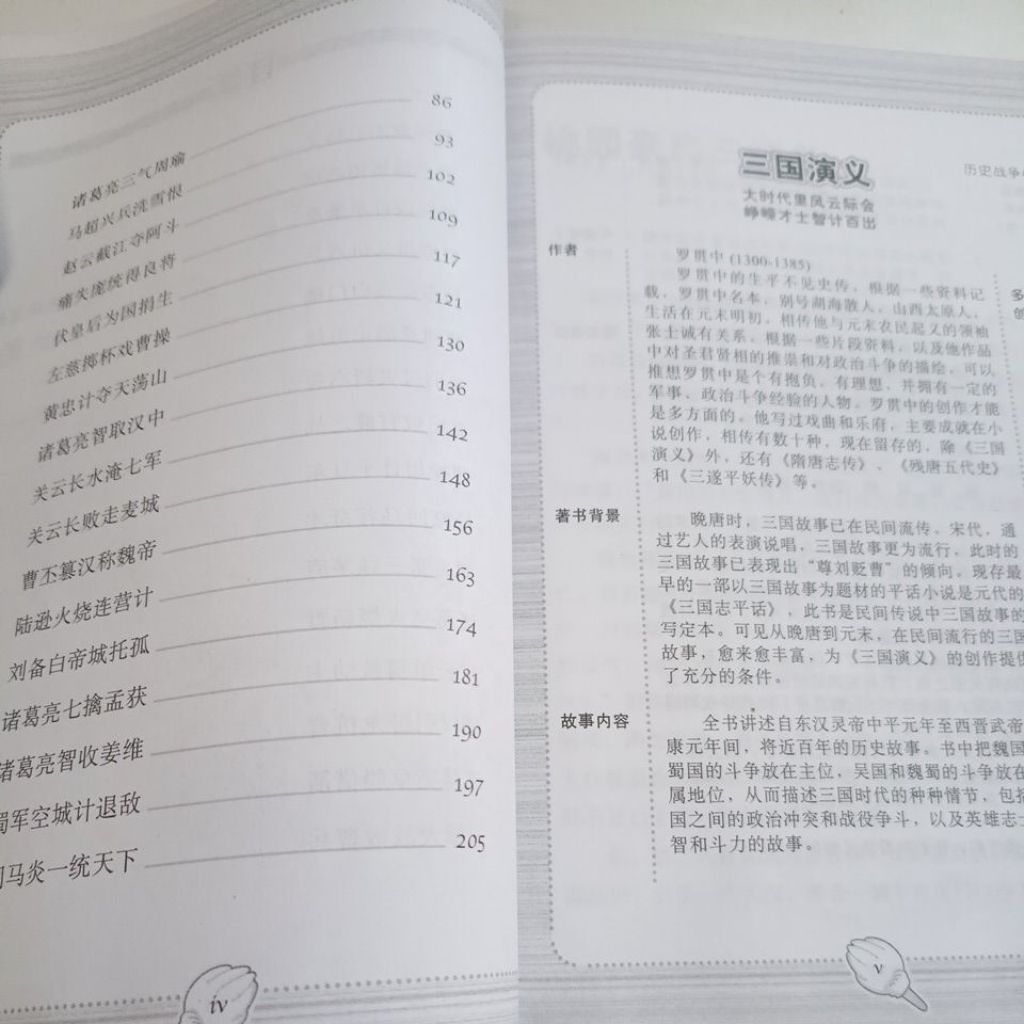 诸葛亮三气周瑜 86
马超兴兵洗雪恨 93
赵云截江夺阿斗 102
痛失庞统得良将 109
伏皇后为国捐生 117
左慈掷杯戏曹操 121
黄忠计夺天荡山 130
诸葛亮智取汉中 136
关云长水淹七军 142
关云长败走麦城 148
曹丕篡汉称魏帝 156
陆逊火烧连营计 163
刘备白帝城托孤 174
诸葛亮七擒孟获 181
诸葛亮智收姜维 190
蜀军空城计退敌 197
司马炎一统天下 205
iv
历史战争
三国演义
大时代里风云际会
峥嵘才士智计百出
作者
罗贯中 (1300-1385)
罗贯中的生平不见史传，根据一些资料记
载，罗贯中名本，别号湖海散人，山西太原人，
生活在元末明初。相传他与元末农民起义的领袖
张士诚有关系。根据一些片段资料，以及他作品
中对圣君贤相的推崇和对政治斗争的描绘，可以
推想罗贯中是个有抱负、有理想，并拥有一定的
军事、政治斗争经验的人物。罗贯中的创作才能
是多方面的。他写过戏曲和乐府，主要成就在小
说创作，相传有数十种，现在留存的，除《三国
演义》外，还有《隋唐志传》、《残唐五代史》
和《三遂平妖传》等。
多
创
著书背景
晚唐时，三国故事已在民间流传。宋代，通
过艺人的表演说唱，三国故事更为流行，此时的
三国故事已表现出“尊刘贬曹”的倾向。现存最
早的一部以三国故事为题材的平话小说是元代的
《三国志平话》，此书是民间传说中三国故事的
写定本。可见从晚唐到元末，在民间流行的三国
故事，愈来愈丰富，为《三国演义》的创作提供
了充分的条件。
故事内容
全书讲述自东汉灵帝中平元年至西晋武帝
康元年间，将近百年的历史故事。书中把魏国
蜀国的斗争放在主位，吴国和魏蜀的斗争放在
属地位，从而描述三国时代的种种情节，包括
国之间的政治冲突和战役争斗，以及英雄志士
智和斗力的故事。
v